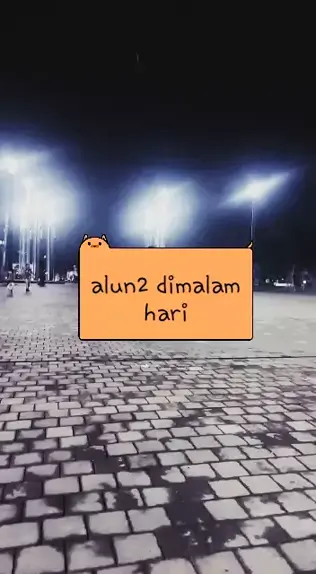 alun2 dimalam
hari